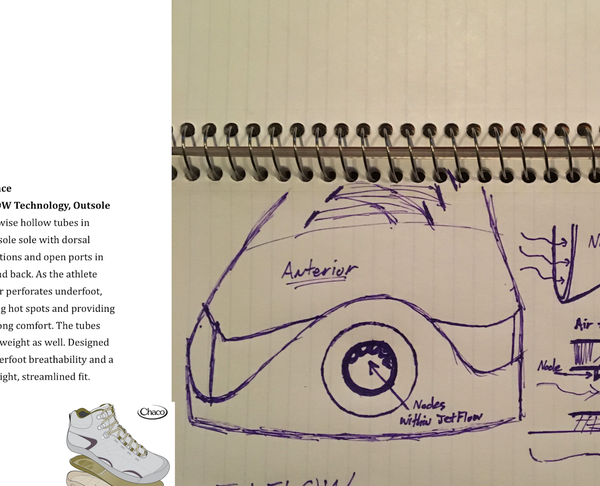 ce
OW Technology, Outsole
wise hollow tubes in
sole sole with dorsal
tions and open ports in
nd back. As the athlete
r perforates underfoot,
g hot spots and providing
ong comfort. The tubes
weight as well. Designed
erfoot breathability and a
ight, streamlined fit.
Chaco
Anterior
Nodes
within JetFlow
Air
Node